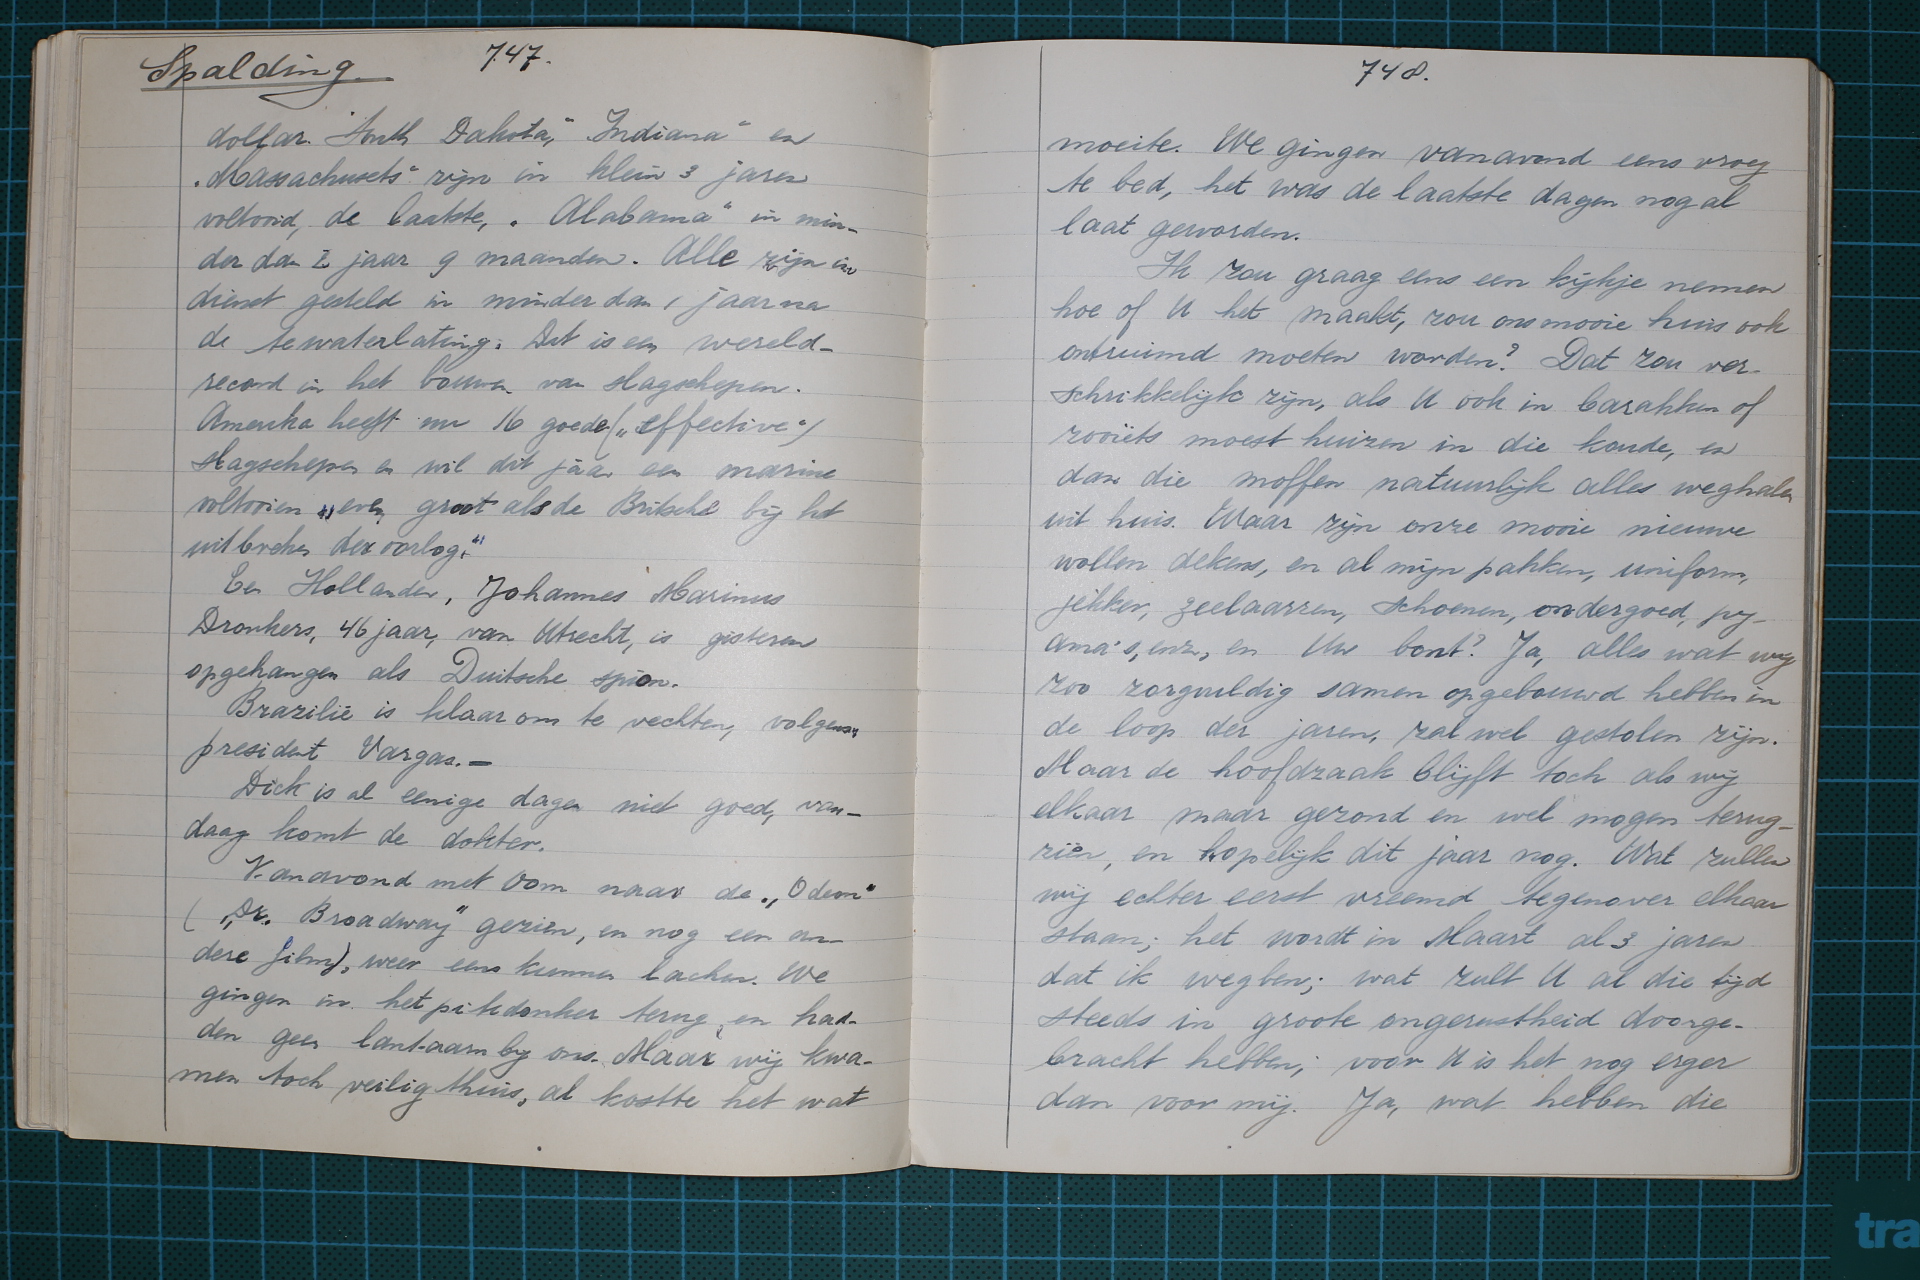 Spalding
747.
dollar. "South Dakota", "Indiana" en
"Massachusets" zijn in klein 3 jaren
voltooid, de laatste, "Alabama" in min-
der dan 2 jaar 9 maanden. Alle zijn in
dienst gesteld in minder dan 1 jaar na
de tewaterlating. Dit is een wereld-
record in het bouwen van slagschepen.
Amerika heeft nu 16 goede („effective")
slagschepen en wil dit jaar een marine
voltooien „even groot als de Britsche bij het
uitbreken der oorlog."
Een Hollander, Johannes Marinus
Dronkers, 46 jaar, van Utrecht, is gisteren
opgehangen als Duitsche spion.
Brazilië is klaar om te vechten, volgens
president Vargas.—
Dick is al eenige dagen niet goed, van-
daag komt de dokter.
Vanavond met Oom naar de „Odeon"
(„Dr. Broadway" gezien, en nog een an-
dere film), weer eens kunnen lachen. We
gingen in het pikdonker terug en had-
den geen lantaarn bij ons. Maar wij kwa-
men toch veilig thuis, al kostte het wat
748.
moeite. We gingen vanavond eens vroeg
te bed, het was de laatste dagen nog al
laat geworden.
Ik zou graag eens een kijkje nemen
hoe of U het maakt, zou ons mooie huis ook
ontruimd moeten worden? Dat zou ver-
schrikkelijk zijn, als U ook in barakken of
zooiets moest huizen in die koude, en
dan die moffen natuurlijk alles weghalen
uit huis. Waar zijn onze mooie nieuwe
wollen dekens, en al mijn pakken, uniform,
jekker, zeelaarzen, schoenen, ondergoed, py-
ama's, enz., en Uw bont? Ja, alles wat wij
zoo zorgvuldig samen opgebouwd hebben in
de loop der jaren, zal wel gestolen zijn.
Maar de hoofdzaak blijft toch als wij
elkaar maar gezond en wel mogen terug-
zien, en hopelijk dit jaar nog. Wat zullen
wij echter eerst vreemd tegenover elkaar
staan; het wordt in Maart al 3 jaren
dat ik weg ben; wat zult U al die tijd
steeds in groote ongerustheid doorge-
bracht hebben; voor U is het nog erger
dan voor mij. Ja, wat hebben die
tra